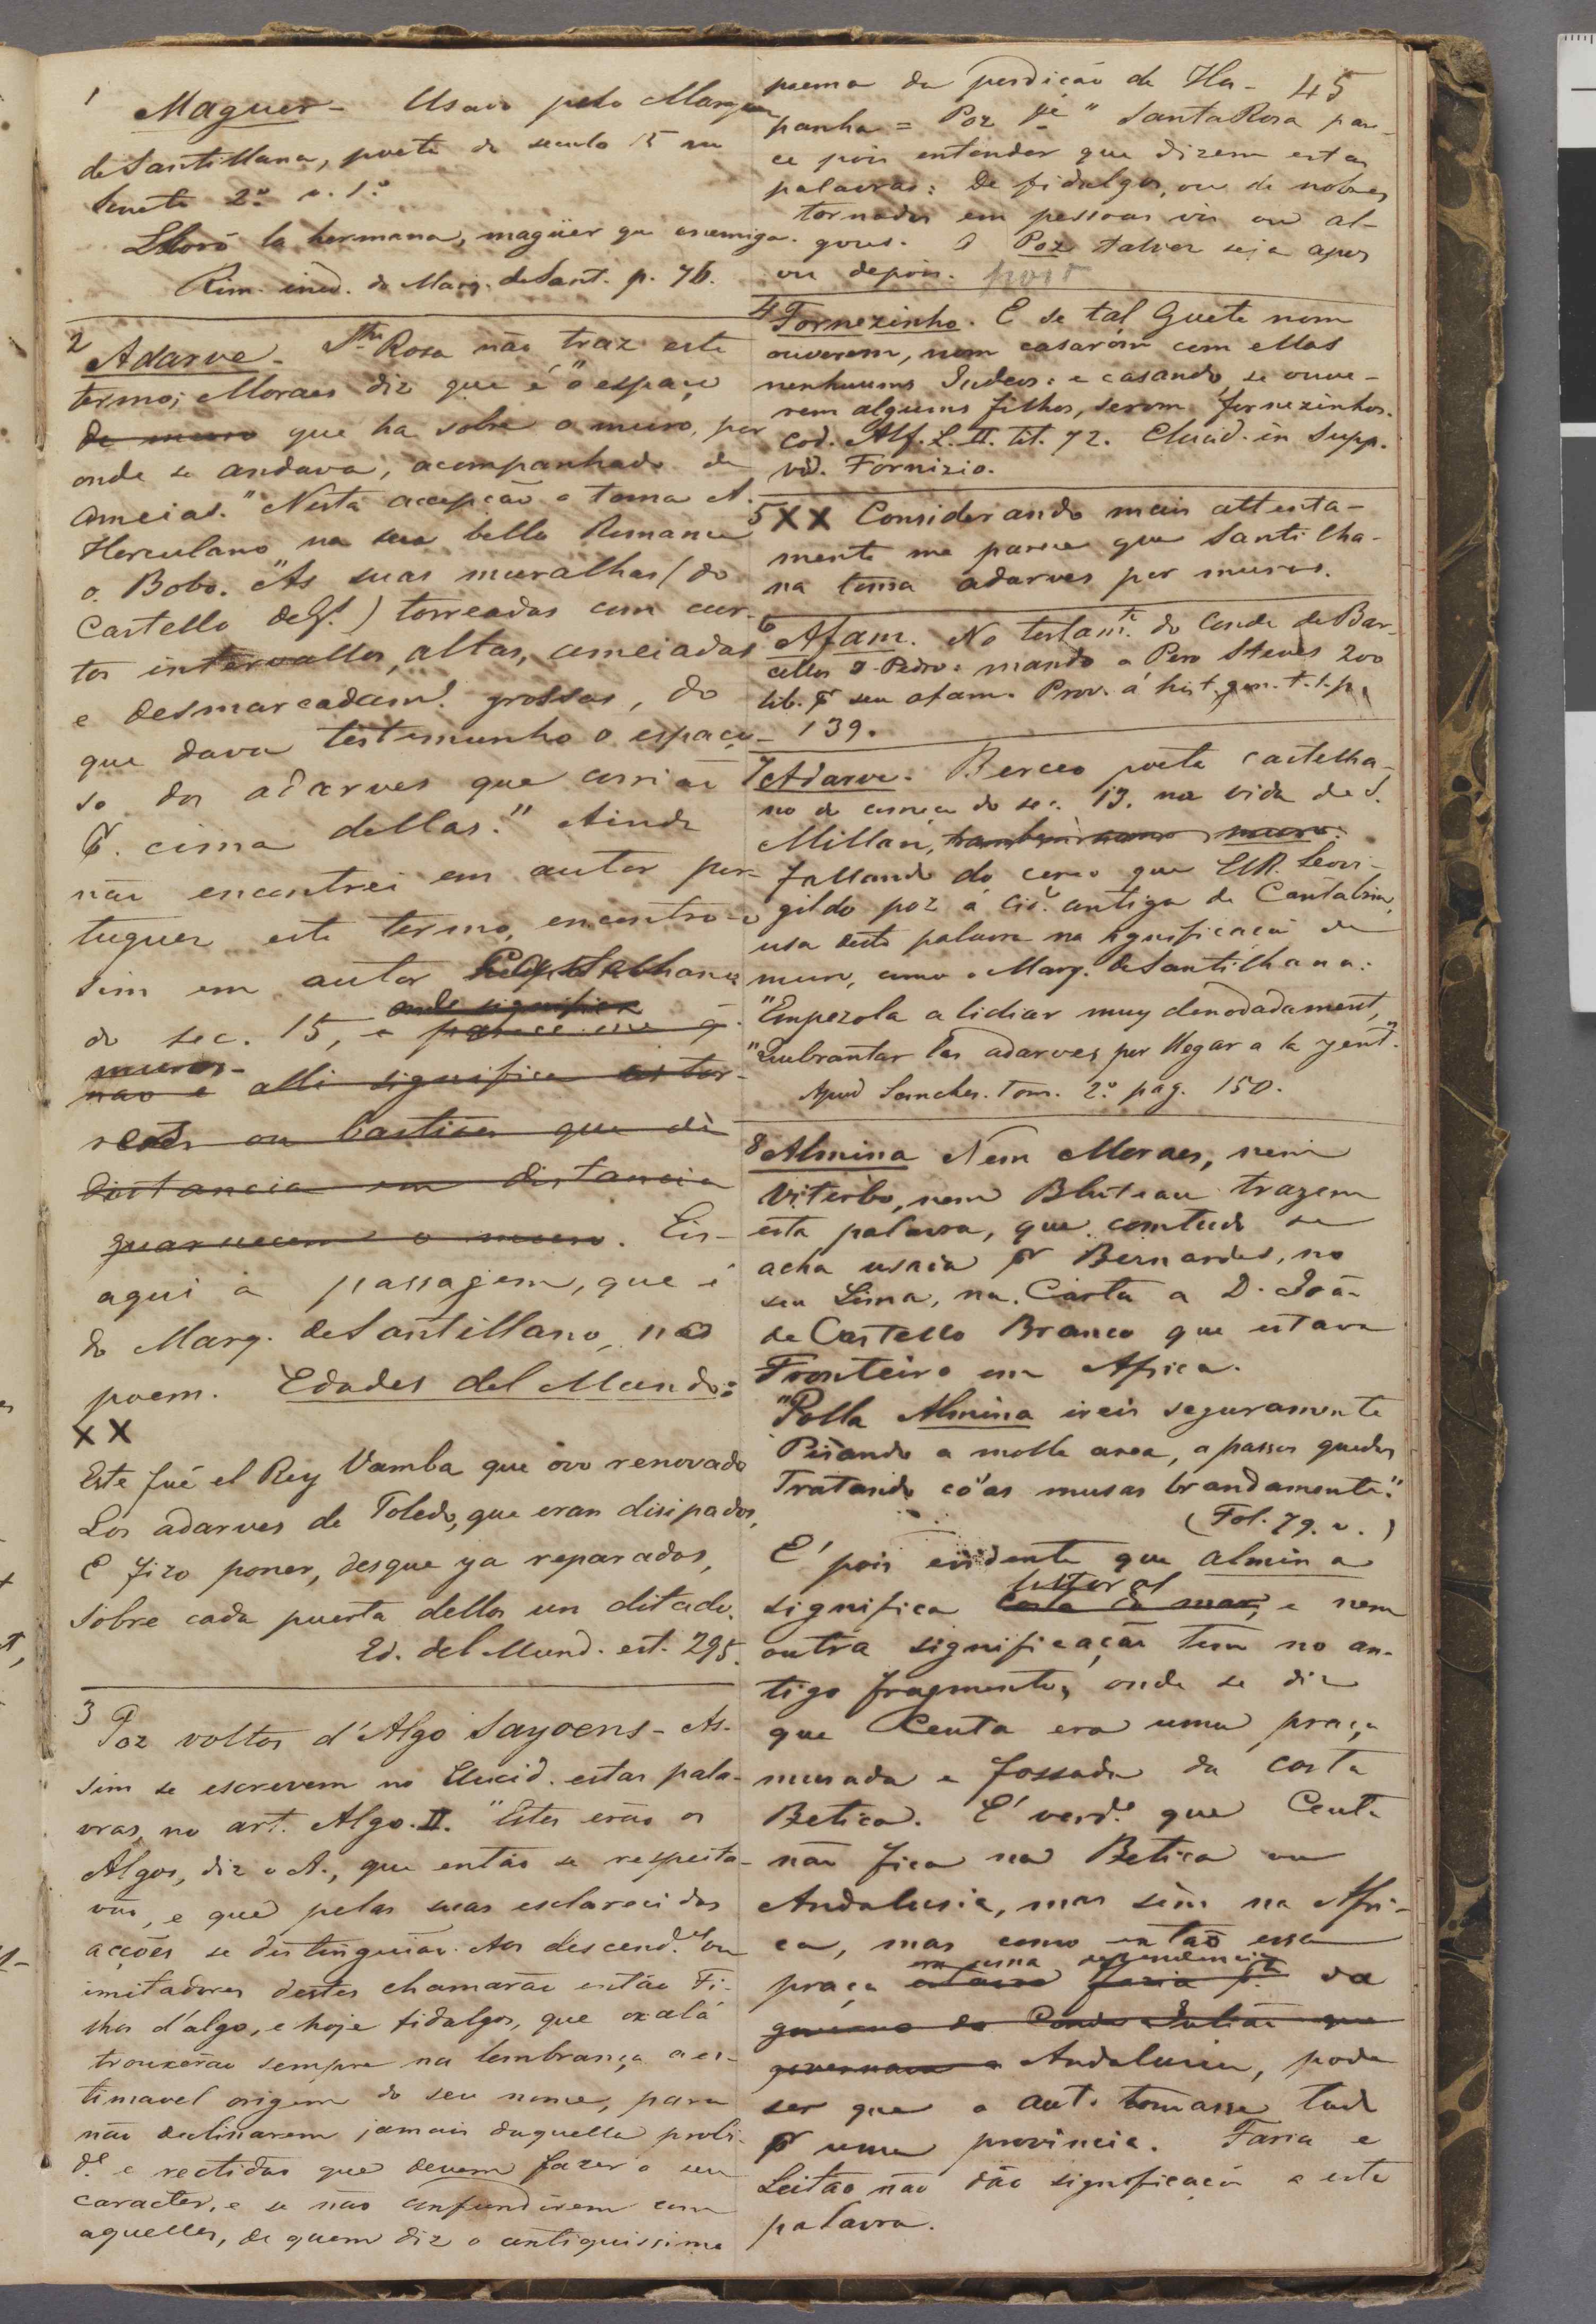 1
Maguer - Usado pelo Marquez
de Santillana, poeta do seculo 15 no
Soneto 2.º v. 1.º
Lloró la hermana, magüer que enemiga.
Rim. ined. do Marq. de Sant. p. 76.
2
Adarve - S.ta Rosa não traz este
termo; Moraes diz que é "o espaço
do muro que ha sobre o muro, por
onde se andava, acompanhado de
ameias." Nesta accepção o toma A.
Herculano no seu bello Romance
o Bobo. "As suas muralhas (do
Castello de G.) torreadas com cur-
tos intervallos, altas, ameiadas
e desmarcadam.e grossas, do
que dava testemunho o espaço-
so dos adarves que corrião
p.r cima dellas." Ainda
não encontrei em autor por-
tuguez este termo, encontro-o
sim em autor Castelhano
do sec. 15, e parece me q.
onde significa
muros-
não é alli significa as tor-
reões ou bastiões que de
distancia em distancia
guarnecem o muro. Eis-
aqui a passagem, que é
do Marq. de Santillano, no
poem. Edades del Mundo:
XX
Este fué el Rey Vamba que ovo renovado
Los adarves de Toledo, que eran disipados,
E fizo poner, desque ya reparados,
Sobre cada puerta dellos un ditado.
Ed. del Mund. est. 295.
3
Poz voltos d'Algo Sayoens - As-
sim se escrevem no Elucid. estas pala-
vras, no art. Algo. II. "Estes erão os
Algos, diz o A., que então se respeita-
vão, e que pelas suas esclarecidas
acções se distinguião. Aos descend.es ou
imitadores destes chamarão então Fi-
lhos d'algo, e hoje fidalgos, que oxalá
trouxerão sempre na lembrança a es-
timavel origem do seu nome, para
não declinarem jamais daquella probi-
d.e e rectidão que devem fazer o seu
caracter, e se não confundirem com
aquelles, de quem diz o antiquissimo
poema da perdição de Hes- 45
panha = Poz je " Santa Rosa pare-
ce pois entender que dizem estas
palavras: De fidalgos, ou de nobres
tornados em pessoas vis ou al-
gozes. O Poz talvez seja apoz
ou depois. post
4 Fornezinho. E se tal Guete nom
ouverem, nom casaróm com ellas
nenhuums Judeos: e casando, se ouve-
rem alguuns filhos, serom fornezinhos.
Cod. Alf. L. II. tit. 72. Elucid. in Supp.
vid. Fornizio.
5 XX Considerando mais attenta-
mente me parece que Santilha-
na toma adarves por muros.
6 Afam. No testam.to do Conde de Bar-
cellos D. Pedro: mando a Pero Steves 200
lib. p.r seu afam. Prov. á hist. gen. t. 1. p.
139.
7 Adarve. Berceo poeta castelha-
no do começo do sec. 13. na vida de S.
Millan, tambem como muro.
fallando do cerco que ElR. Leovi-
gildo poz á cid.e antiga de Cantabria,
usa desta palavra na significação de
muro, como o Marq. de Santilhana:
"Empezola a lidiar muy denodadament,
"Quebrantar los adarves por llegar a la yent."
Apud Sanches. Tom. 2.º pag. 150.
8 Almina Nem Moraes, nem
Viterbo, nem Bluteau trazem
esta palavra, que comtudo se
acha usada p.r Bernardes, no
seu Lima, na Carta a D. João
de Castello Branco que estava
Fronteiro em Africa.
"Polla Almina ireis seguramente
Pisando a molle area, a passos quedos
Tratando cõ as musas brandamente."
(Fol. 79. v.)
E' pois evidente que almina
litoral
significa costa do mar, e nem
outra significação tem no an-
tigo fragmento, onde se diz
que Ceuta era uma praça
murada e fossada da costa
Betica. E' verd.e que Ceuta
não fica na Betica ou
Andalusia, mas sim na Afri-
ca, mas como então essa
era uma dependencia
praça estava fazia p.te da
governo do Conde Julião que
governava a Andalusia, pode
ser que o aut. tomasse tudo
p.r uma provincia. Faria e
Leitão não dão significação a esta
palavra.